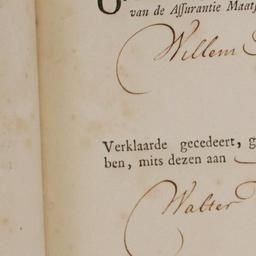 van de Assurantie Maats
Willem
Verklaarde gecedeert, g
ben, mits dezen aan
Walter